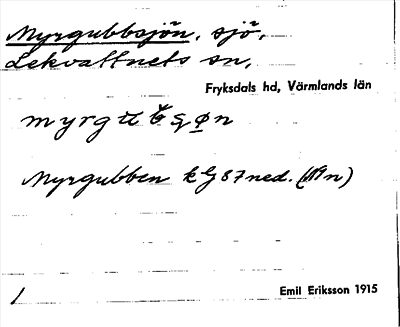 Myrgubbsjön, sjö,
Lekvattnets sn,
Fryksdals hd, Värmlands län
Myrgubben kG 87 ned. (Nn)
1
Emil Eriksson 1915